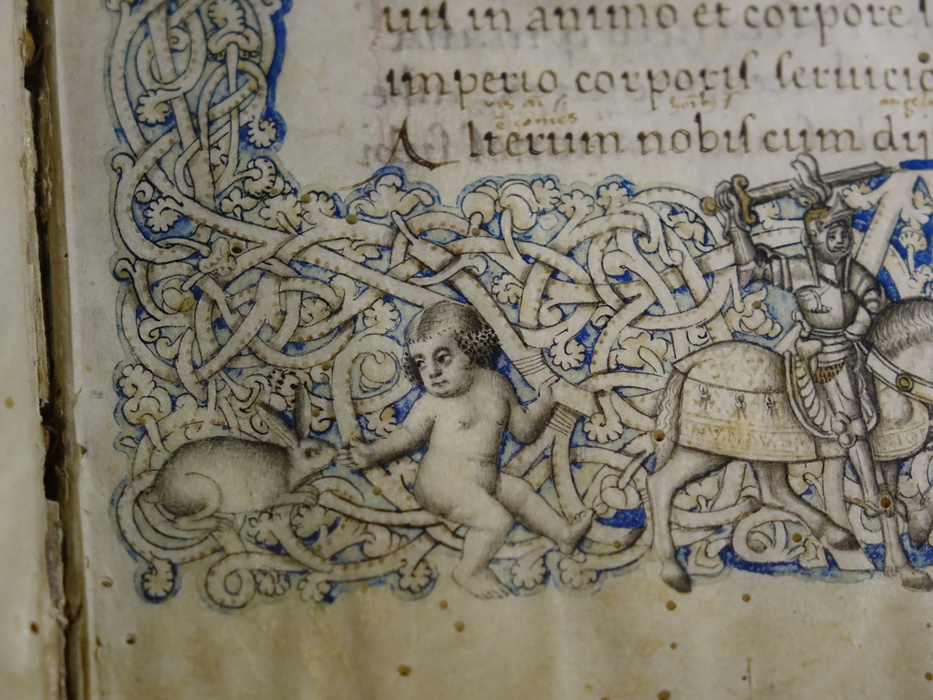 uis in animo et corpore
imperio corporis seruicio
Alterum nobis cum dij